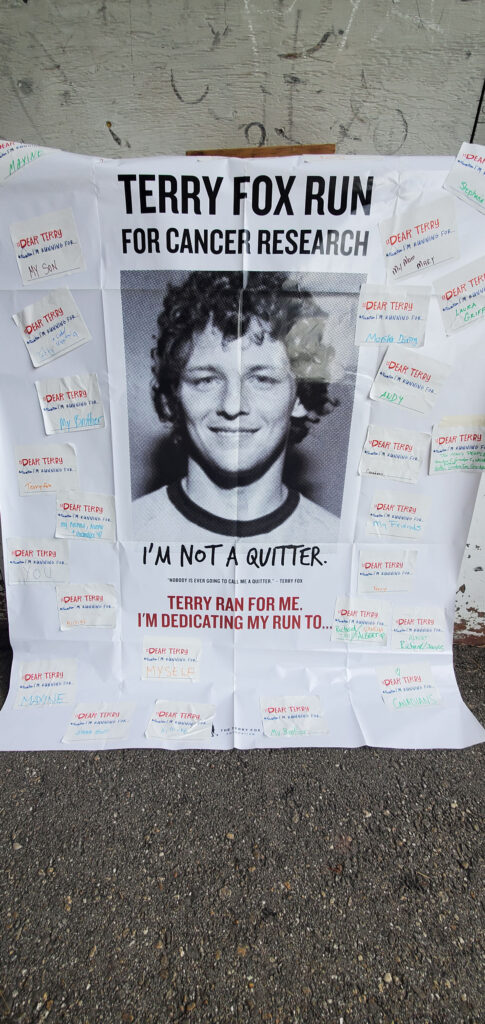 TERRY FOX RUN
FOR CANCER RESEARCH
I'M NOT A QUITTER.
"NOBODY IS EVER GOING TO CALL ME A QUITTER." - TERRY FOX
TERRY RAN FOR ME.
I'M DEDICATING MY RUN TO...
THE TERRY FOX
FOUNDATION
I'M RUNNING FOR
MAXINE
DEAR TERRY
I'M RUNNING FOR...
MY SON
DEAR TERRY
I'M RUNNING FOR...
DEAR TERRY
I'M RUNNING FOR...
My Brother
DEAR TERRY
I'M RUNNING FOR...
Terry Fox
DEAR TERRY
I'M RUNNING FOR...
DEAR TERRY
I'M RUNNING FOR...
YOU
DEAR TERRY
I'M RUNNING FOR...
DEAR TERRY
I'M RUNNING FOR...
MAXINE
DEAR TERRY
I'M RUNNING FOR...
DEAR TERRY
I'M RUNNING FOR...
MYSELF
DEAR TERRY
I'M RUNNING FOR...
DEAR TERRY
I'M RUNNING FOR...
My Brother
DEAR
I'M
Stephen
DEAR TERRY
I'M RUNNING FOR...
My Mom MARY
DEAR TERRY
I'M RUNNING FOR
LAURA
DEAR TERRY
I'M RUNNING FOR...
DEAR TERRY
I'M RUNNING FOR...
ANDY
DEAR TERRY
I'M RUNNING FOR...
DEAR TERRY
DEAR TERRY
I'M RUNNING FOR...
My Friends
DEAR TERRY
I'M RUNNING FOR...
DEAR TERRY
I'M RUNNING FOR...
DEAR TERRY
I'M RUNNING FOR...
DEAR TERRY
I'M RUNNING FOR...
CANADIANS